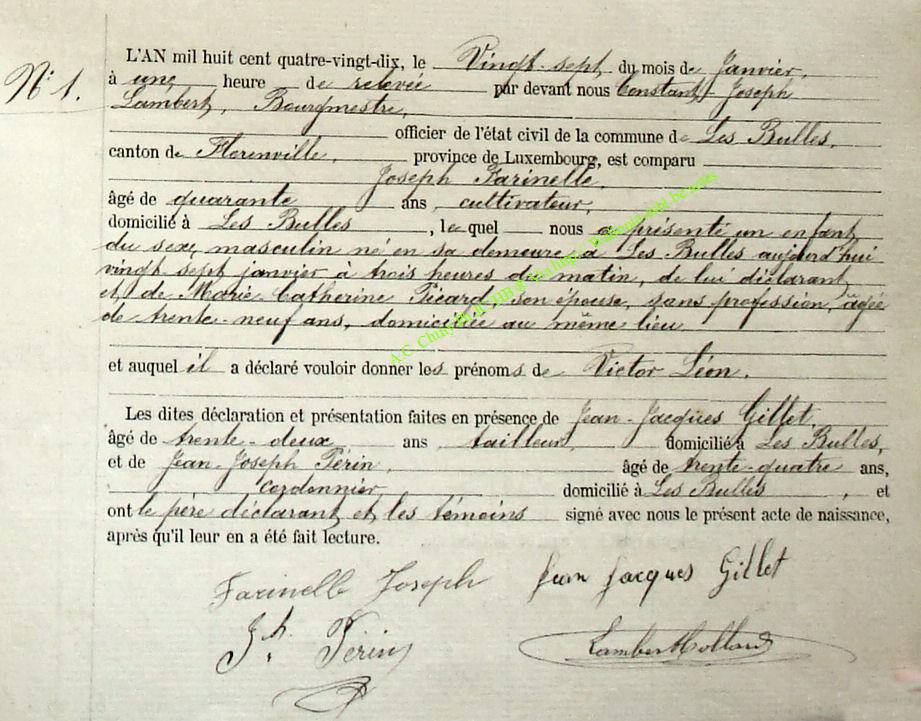 N° 1.
L'AN mil huit cent quatre-vingt-dix, le Vingt-sept du mois de Janvier,
à une heure de relevée par devant nous Constant Joseph
Lambert, Bourgmestre,
officier de l'état civil de la commune de Les Bulles,
canton de Florenville, province de Luxembourg, est comparu
Joseph Farinelle,
âgé de quarante ans, cultivateur,
domicilié à Les Bulles, le quel nous a présenté un enfant
du sexe masculin né en sa demeure à Les Bulles aujourd'hui
vingt-sept janvier à trois heures du matin, de lui déclarant
et de Marie Catherine Picard, son épouse, sans profession, âgée
de trente-neuf ans, domiciliée au même lieu
et auquel il a déclaré vouloir donner les prénoms de Victor Léon.
Les dites déclaration et présentation faites en présence de Jean-Jacques Gillet
âgé de trente-deux ans tailleur, domicilié à Les Bulles,
et de Jean-Joseph Périn, âgé de trente-quatre ans,
cordonnier domicilié à Les Bulles, et
ont le père déclarant et les témoins signé avec nous le présent acte de naissance,
après qu'il leur en a été fait lecture.
Farinelle Joseph Jean Jacques Gillet
Jh. Périn
A.C. Chiny